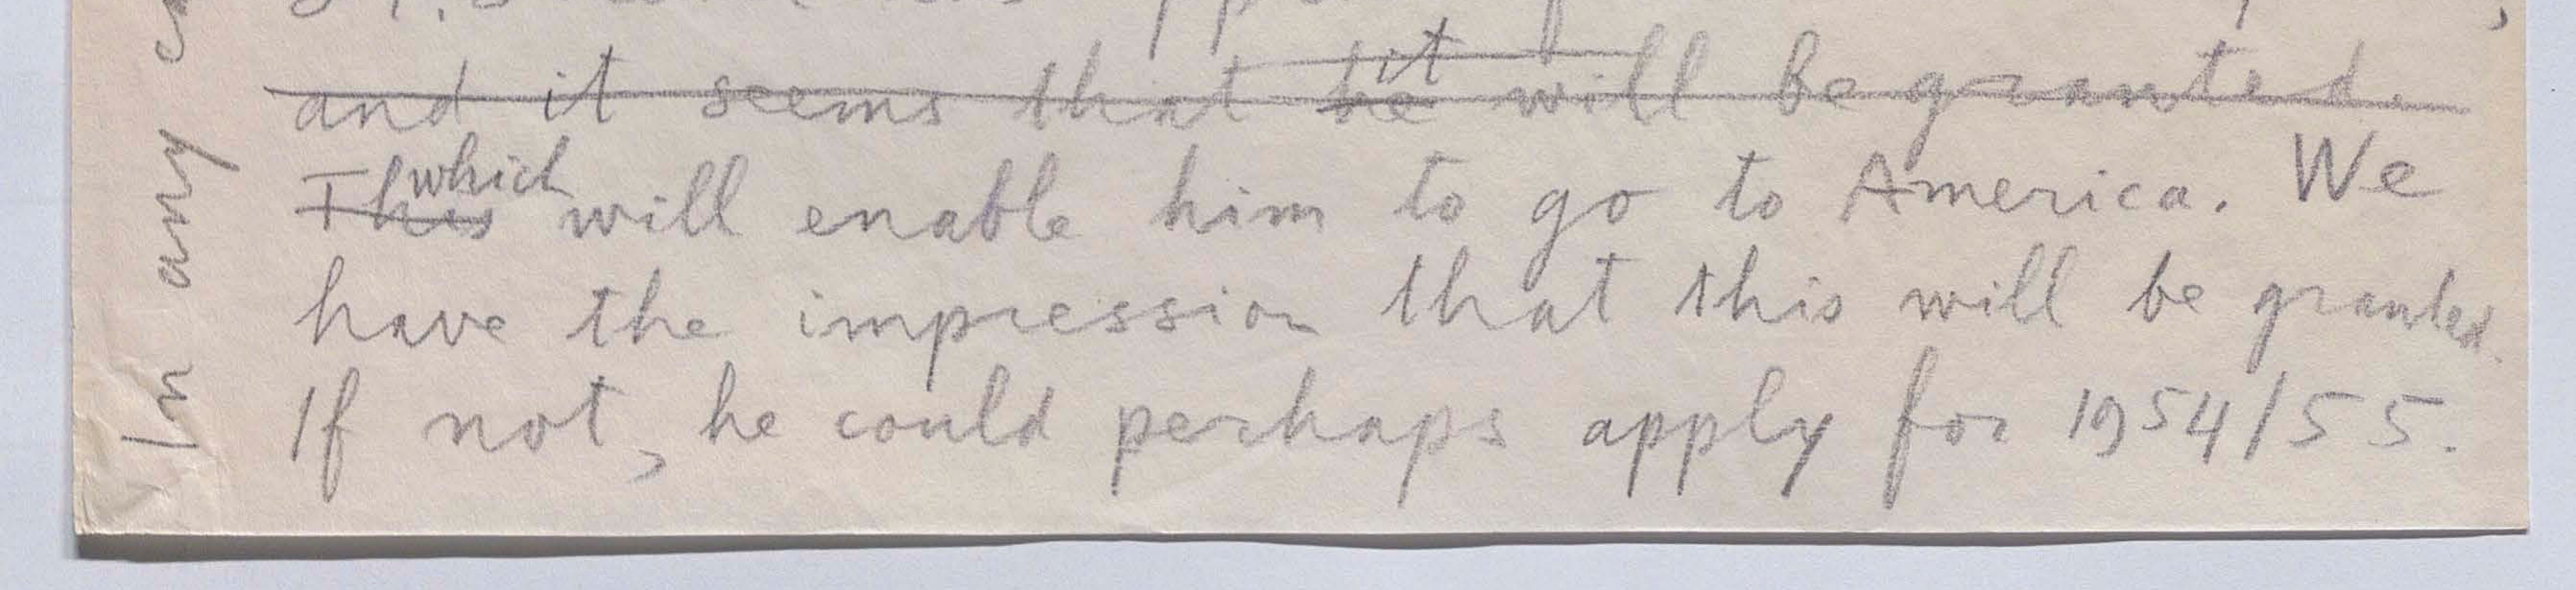 and it seems that he it will be granted.
This which will enable him to go to America. We
have the impression that this will be granted.
If not, he could perhaps apply for 1954/55.
In any